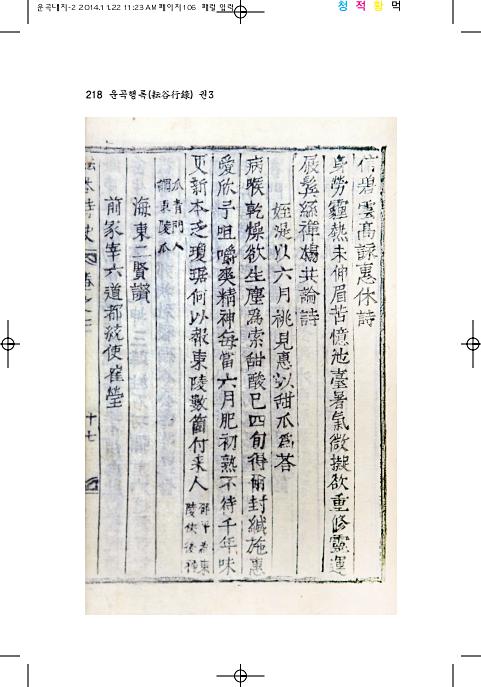 운곡내지-2 2014.11.22 11:23 AM 페이지106
청 적 황 먹
218 운곡행록(耘谷行錄) 권3
碧雲高詠惠休詩
勞靈熱未伸眉苦憶池臺暑氣微擬欲重修靈運
展鬢絲禪榻共論詩
姪湜以六月桃見惠以甜瓜爲答
病喉乾燥欲生塵爲索甜酸已四旬得爾封緘施惠
愛欣予咀嚼爽精神每當六月肥初熟不待千年味
更新本乏瓊琚何以報東陵數箇付來人
邵平爲東
陵侯後種
瓜靑門人
謂東陵瓜
海東二賢讚
前冢宰六道都統使崔瑩
十七